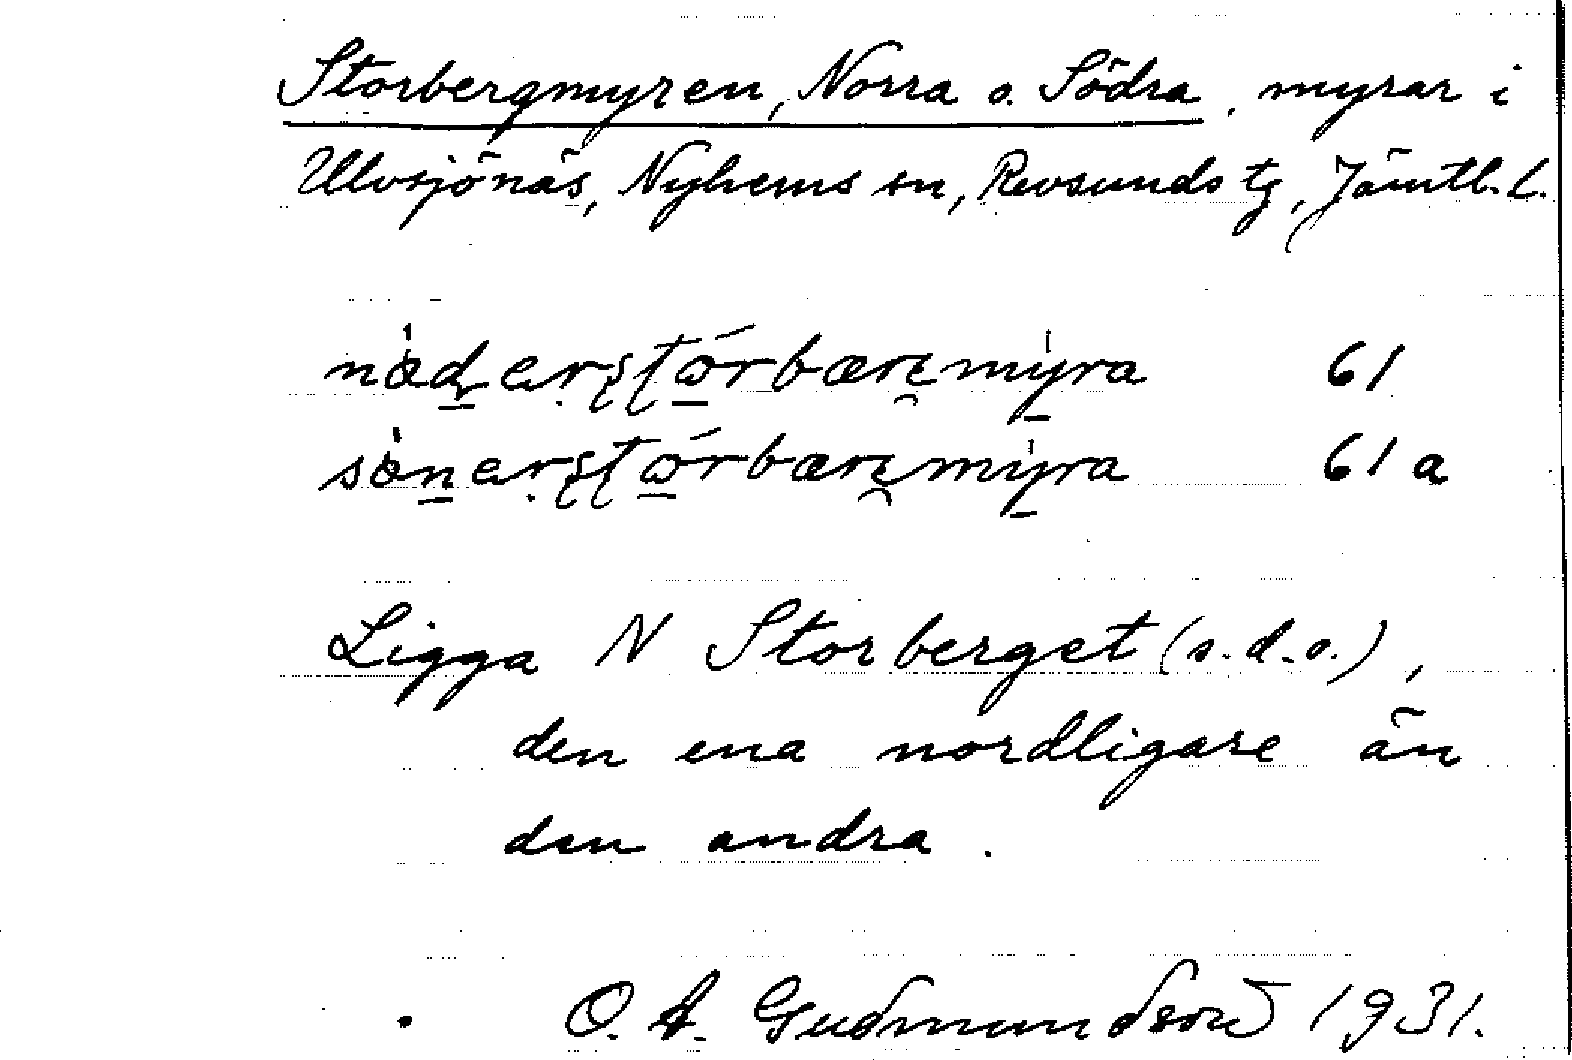 Storbergmyren, Norra o. Södra, myrar i
Ulvsjönäs, Nyhems sn, Revsunds tg, Jämtl. l.
61
61 a
Ligga N Storberget (s.d.o.),
den ena nordligare än
den andra.
O. A. Gudmundson 1931.